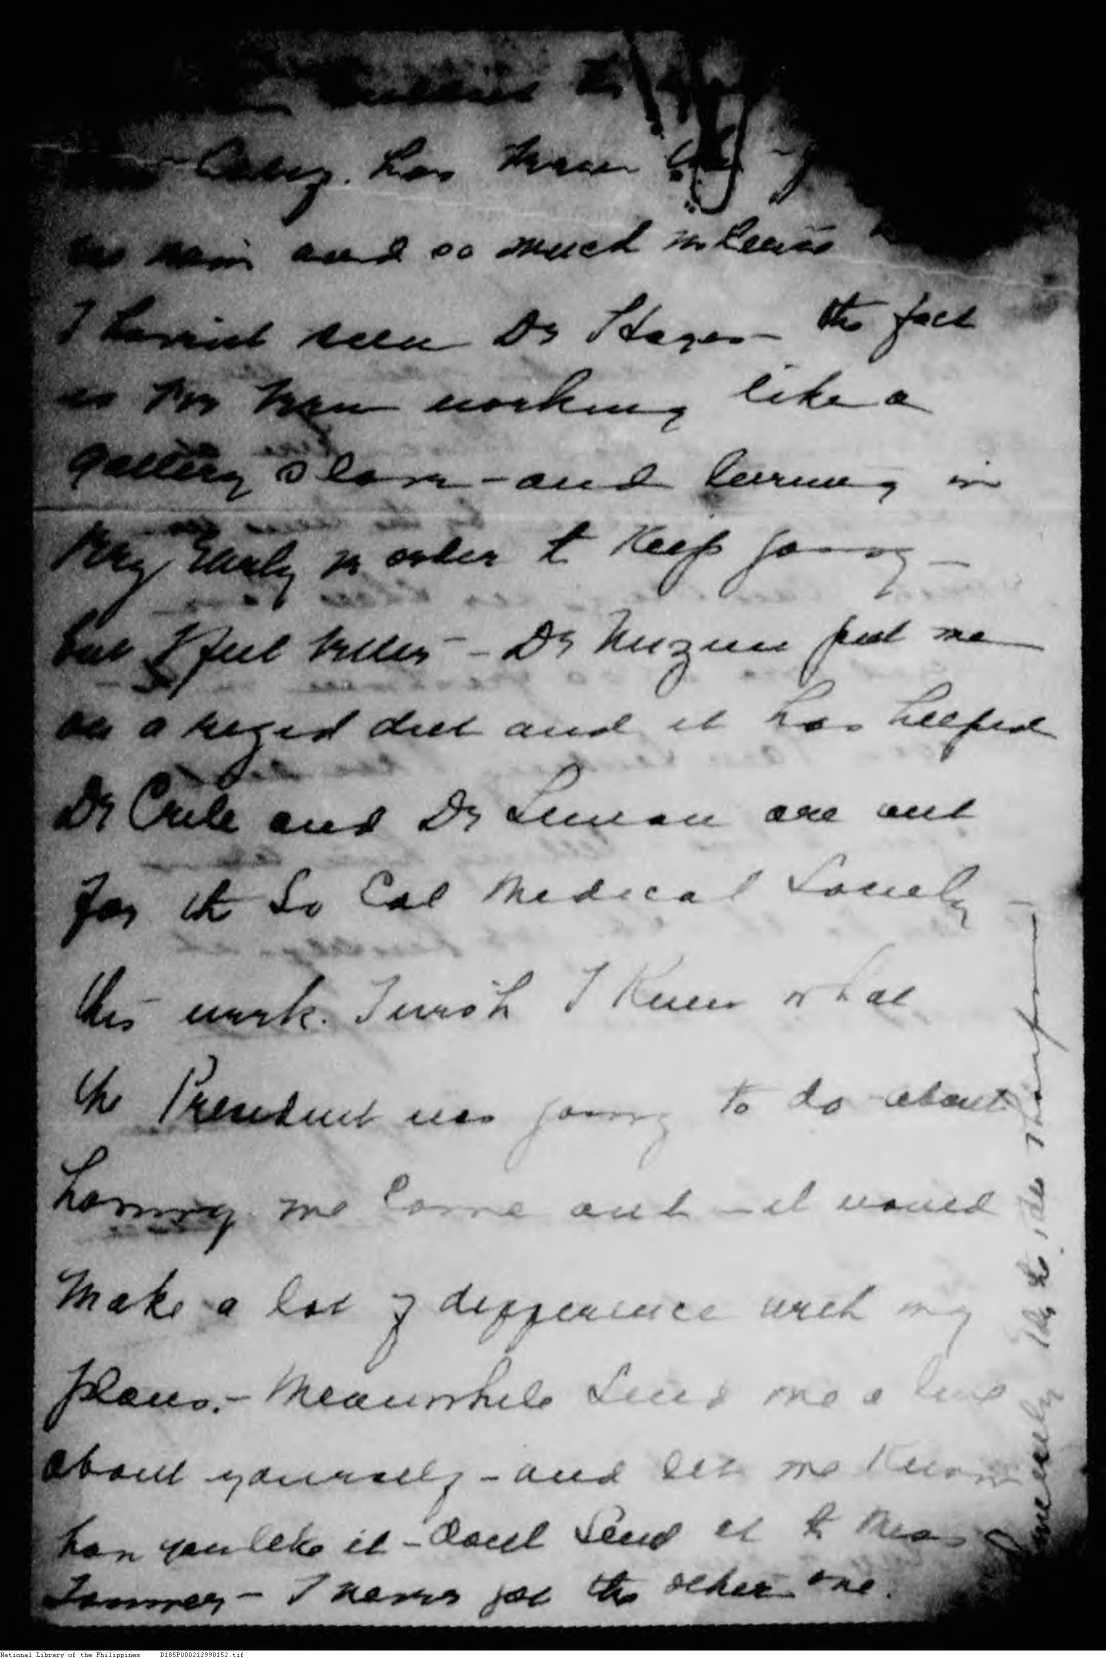 has been
and so much
I havnt seen Dr Hayes – the fact
is Ive been working like a
galley slave – and turning in
very early in order to Keep going –
but I feel better – Dr Nuzum put me
on a rigid diet and it has helped
Dr Crile and Dr Leman are out
for the So Cal Medical Society –
this week. I wish I Knew what
the President was going to do about
having me come out – it would
make a lot of difference with my
plans. – Meanwhile Send me a line
about yourself – and let me Know
how you like it – Dont Send it to
– I never got the other one.
Sincerely
National Library of the Philippines D185P000212990152.tif